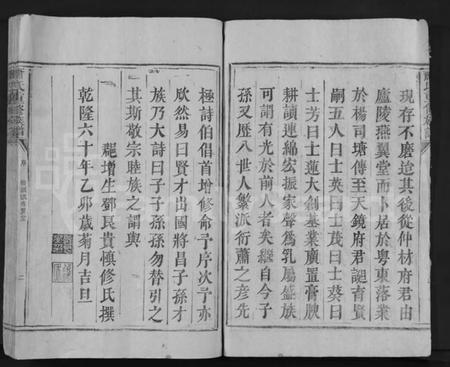 現存不磨迨其後從仲材府君由
廬陵燕翼堂而卜居於粵東落業
於楊司塘傳至天鏡府君誕育賢
嗣五人曰士英曰士茂曰士葵曰
士芳曰士蓮大創基業廣置膏腴
耕讀連綿宏振家聲為乳陽盛族
可謂有光於前人者矣繼自今子
孫又歷八世人繁派衍蕭之彥先
極詩伯倡首增修命予序次予亦
欣然易曰賢才出國將昌子孫才
族乃大詩曰子子孫孫勿替引之
其斯敬宗睦族之謂與
龍增生鄧民貴慎修氏撰
乾隆六十年乙卯歲菊月吉旦
蕭氏重修族譜
序
二